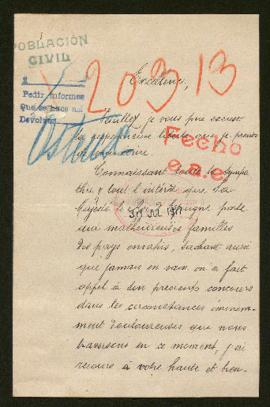 POBLACIÓN
CIVIL
20313
Pedir informes
Devolver
Ostende
Excellence,
Veuillez je vous prie excuser
la respectueuse liberté que je prends
Fecho
Connaissant toute la sympa
thie y tout l'intérêt que Sa
Majesté le Roy d'Espagne porte
aux malheureuses familles
des pays envahis, sachant aussi
que jamais en vain on a fait
appel à son précieux concours
dans les circonstances immen-
sément douloureuses que nous
traversons en ce moment, j'ai
recours à votre haute et bien-